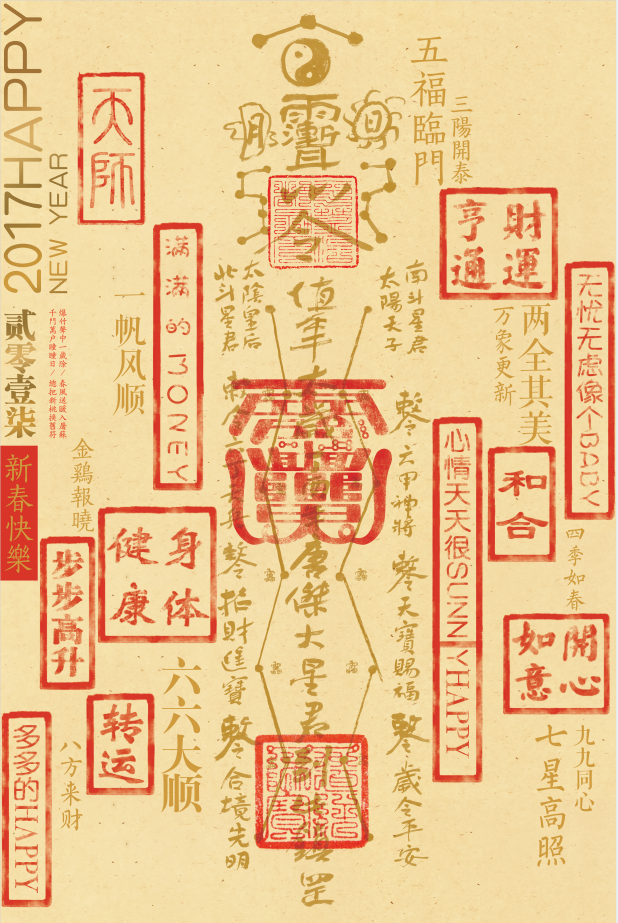 2017HAPPY
NEW YEAR
贰零壹柒
爆竹聲中一歲除/春風送暖入屠蘇
千門萬户曈曈日/總把新桃换舊符
新春快樂
天師
满满的MONEY
一帆风顺
金鷄報曉
步步高升
身体健康
六六大顺
转运
八方来财
多多的HAPPY
五福臨門
三陽開泰
財運亨通
无忧无虑像个BABY
两全其美
万象更新
心情天天很SUNNYHAPPY
和合
四季如春
開心如意
九九同心
七星高照
靈
南斗星君
太陽天子
太陰星后
北斗星君
值年
唐傑大星君
六甲神將
天寶賜福
歲令平安
招財進寶
合境光明